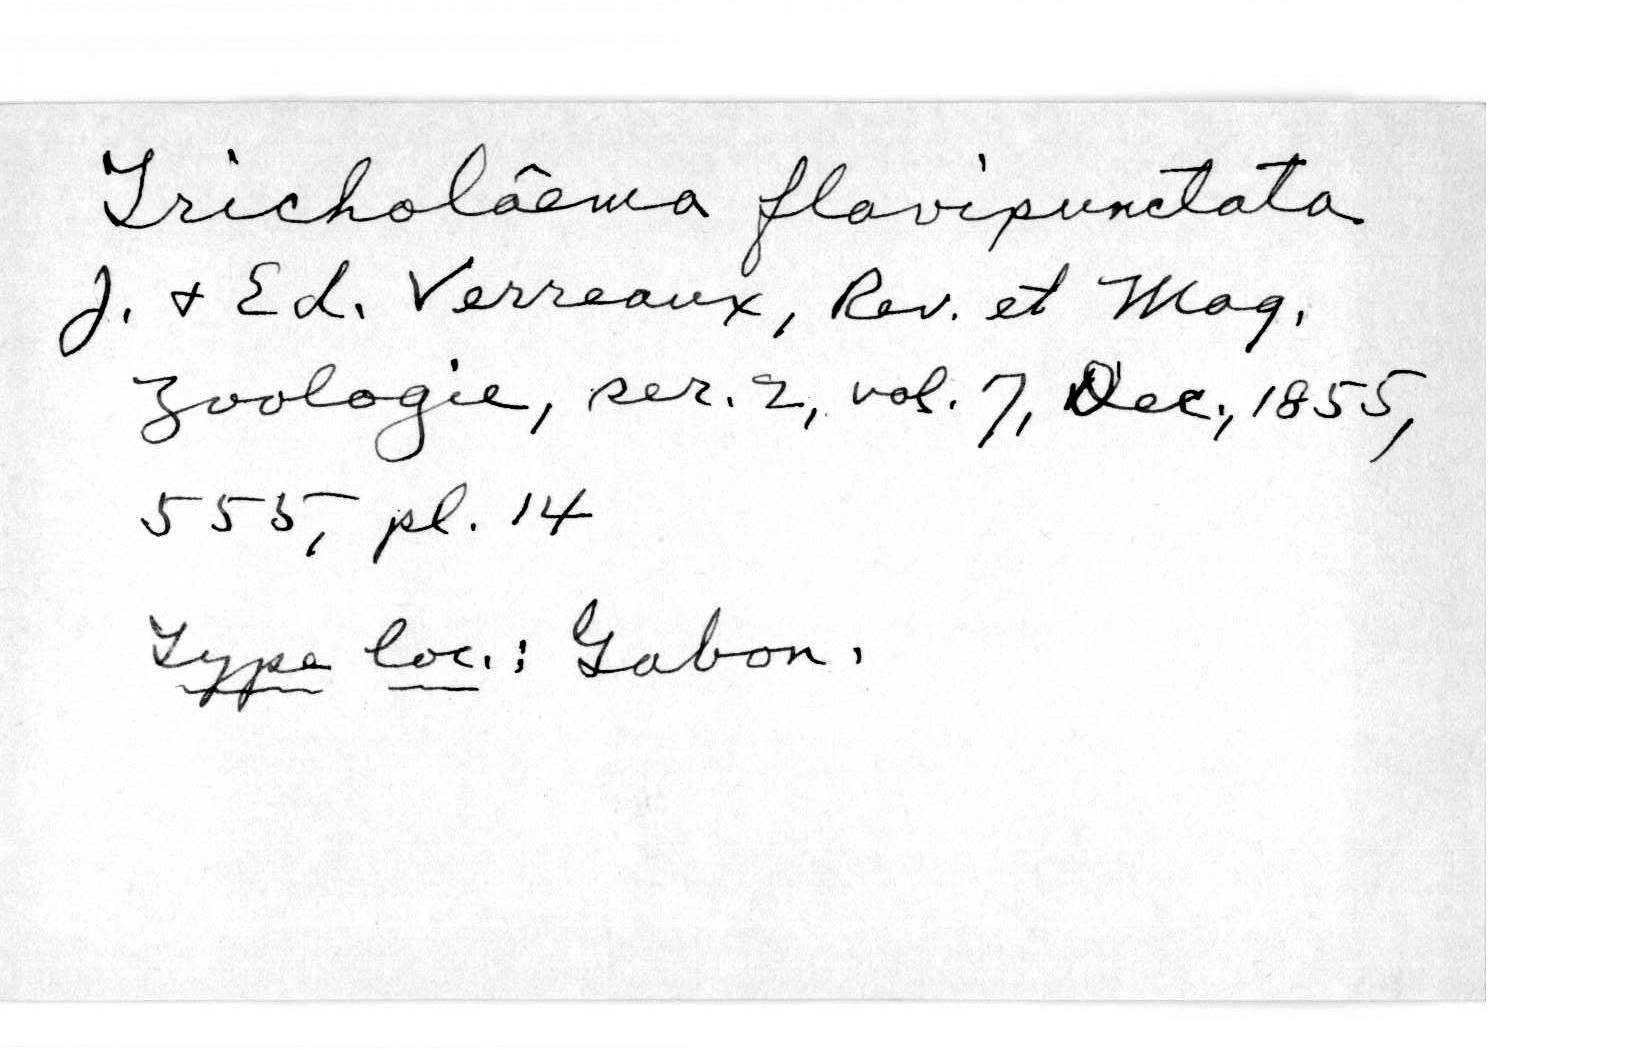 Tricholâema flavipunctata
J. & Ed. Verreaux, Rev. et Mag.
Zoologie, ser. 2, vol. 7, Dec., 1855,
555, pl. 14
Type loc.: Gabon.